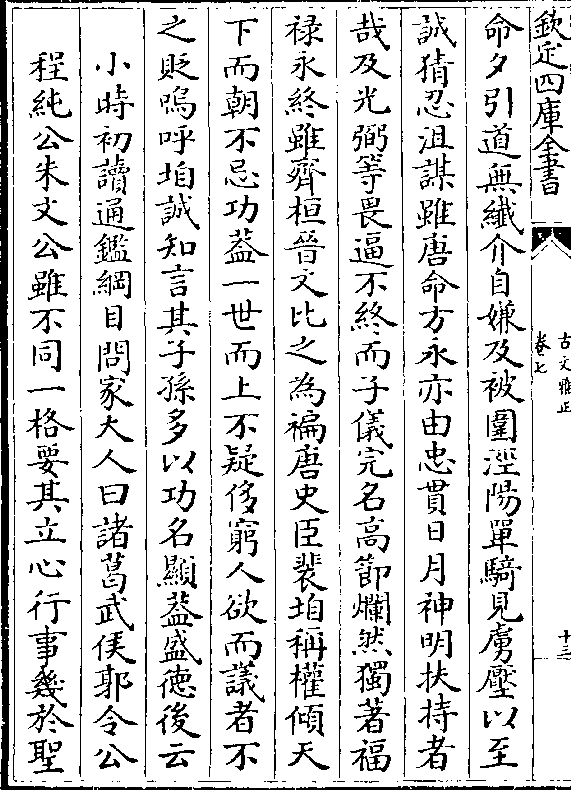 欽定四庫全書
古文雅正
卷七
十三
命夕引道無纎介自嫌及被圍涇陽單騎見虜壓以至
誠猜忍沮謀雖唐命方永亦由忠貫日月神明扶持者
哉及光弼等畏逼不終而子儀完名高節爛然獨著福
禄永終雖齊桓晉文比之為褊唐史臣裴垍稱權傾天
下而朝不忌功葢一世而上不疑侈窮人欲而議者不
之貶嗚呼垍誠知言其子孫多以功名顯葢盛徳後云
小時初讀通鑑綱目問家大人曰諸葛武侯郭令公
程純公朱文公雖不同一格要其立心行事幾於聖